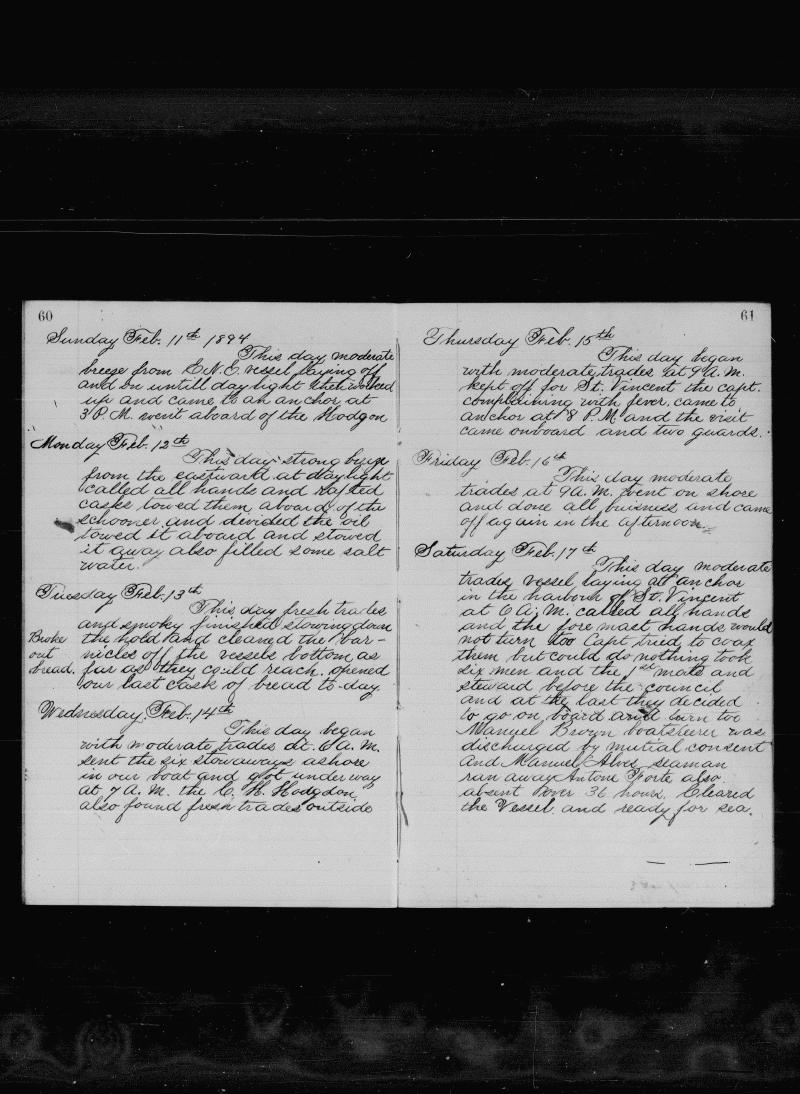 60
Sunday Feb. 11th 1894
This day moderate
breeze from E.N.E. vessel laying off
and on untill daylight then worked
up and came to an anchor at
3 P.M. went aboard of the Hodgon
Monday Feb. 12th
This day strong breeze
from the eastward at daylight
called all hands and rafted
casks towed them aboard of the
schooner and divided the oil
towed it aboard and stowed
it away also filled some salt
water.
Tuesday Feb. 13th
This day fresh trades
and smoky finished stowing down
Broke out bread.
the hold and cleaned the bar-
nicles off the vessels bottom as
far as they could reach. opened
our last cask of bread to-day
Wednesday. Feb. 14th
This day began
with moderate trades at 6 A.M.
sent the six stowaways ashore
in our boat and got under way
at 7 A.M. the C. H. Hodgdon
also found fresh trades outside
61
Thursday Feb. 15th
This day began
with moderate trades at 9 A.M.
kept off for St. Vincent the capt.
complaining with fever. came to
anchor at 8 P.M and the visit
came onboard and two guards.
Friday Feb. 16th
This day moderate
trades at 9 A.M. went on shore
and done all buisness and came
off again in the afternoon.
Saturday Feb. 17th
This day moderate
trades vessel laying at anchor
in the harbour of St. Vincent
at 6 A.M. called all hands
and the fore mast hands would
not turn too Capt tried to coax
them but could do nothing took
six men and the 1st mate and
steward before the council
and at the last they decided
to go on board and turn too
Manuel Brown boatsteerer was
discharged by mutial consent
and Manuel Alves seaman
ran away Antone Forte also
absent over 36 hours. Cleared
the Vessel. and ready for sea.